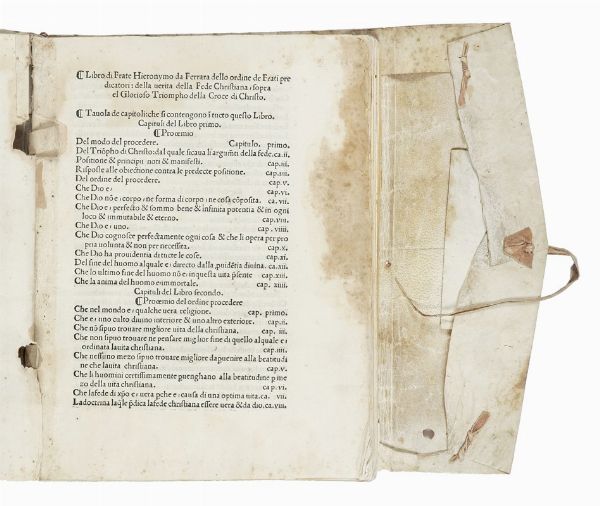 ¶ Libro di Frate Hieronymo da Ferrara dello ordine de Frati pre
dicatori: della uerita della Fede Christiana/sopra
el Glorioso Triompho della Croce di Christo.
¶ Tauola de capitoli: che si contengono ī tucto questo Libro.
Capituli del Libro primo.
¶ Proemio
Del modo del procedere. Capitulo. primo.
Del Triōpho di Christo: dal quale si caua li argumēti della fede. ca. ii.
Positione & principii noti & manifesti. cap. iii.
Risposte alle obiectione contra le predecte positione. cap. iiii.
Del ordine del procedere. cap. v.
Che Dio e. cap. vi.
Che Dio nō e: corpo: ne forma di corpo: ne cosa cōposita. ca. vii.
Che Dio e: perfecto & sommo bene & infinita potentia & in ogni
loco & immutabile & eterno. cap. viii.
Che Dio e: uno. cap. viiii.
Che Dio cognosce perfectamente ogni cosa & che li opera per pro
pria uolunta & non per necessita. cap. x.
Che Dio ha prouidentia di tucte le cose. cap. xi.
Del fine del huomo al quale e: directo dalla ꝓuidētia diuina. ca. xii.
Che lo ultimo fine del huomo nō e: in questa uita p̄sente cap. xiii.
Che la anima del huomo e: immortale. cap. xiiii.
Capituli del Libro secondo.
¶ Proemio del ordine procedere
Che nel mondo e: qualche uera religione. cap. primo.
Che e: uno culto diuino interiore & uno altro exteriore. cap. ii.
Che nō si puo trouare migliore uita della christiana. cap. iii.
Che non si puo trouare ne pensare miglior fine di quello al quale e:
ordinata la uita christiana. cap. iiii.
Che nessuno mezo si puo trouare migliore da puenire alla beatitudi
ne che la uita christiana. cap. v.
Che li huomini certissimamente puenghano alla beatitudine p me
zo della uita christiana. cap. vi.
Che la fede di xp̄o e: uera pche e: causa di una optima uita. ca. vii.
La doctrina laq̄le p̄dica la fede christiana essere uera & da dio. ca. viii.